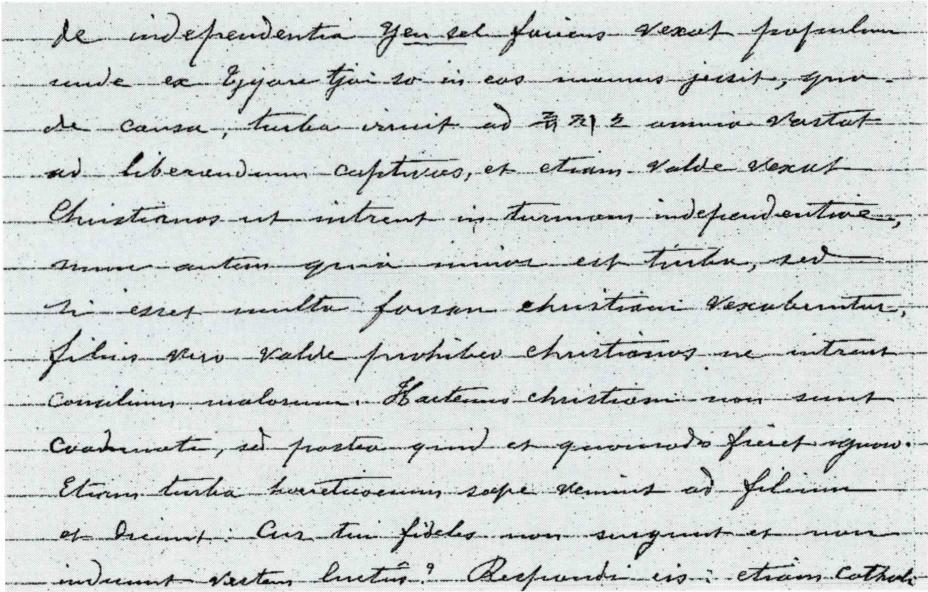 de independentia Yen sel faciens vexat populum
unde ex Tjyare tjai so in eos manus jecit, qua-
de causa, turba irruit ad 쥬지소 omnia vastat
ad liberandum captivos, et etiam valde vexat
Christianos ut intrent in turmam independentiae,
nunc autem quia minor est turba, sed
si esset multa forsan christiani vexabuntur,
filius vero valde prohibeo christianos ne intrent
consilium malorum. Hactenus christiani non sunt
coadunati, sed postea quid et quomodo fieret
Etiam turba haereticorum saepe veniunt ad filium
et dicunt: Cur tui fideles non surgunt et non
induunt vestem luctûs? Respondi eis: etiam Catholi